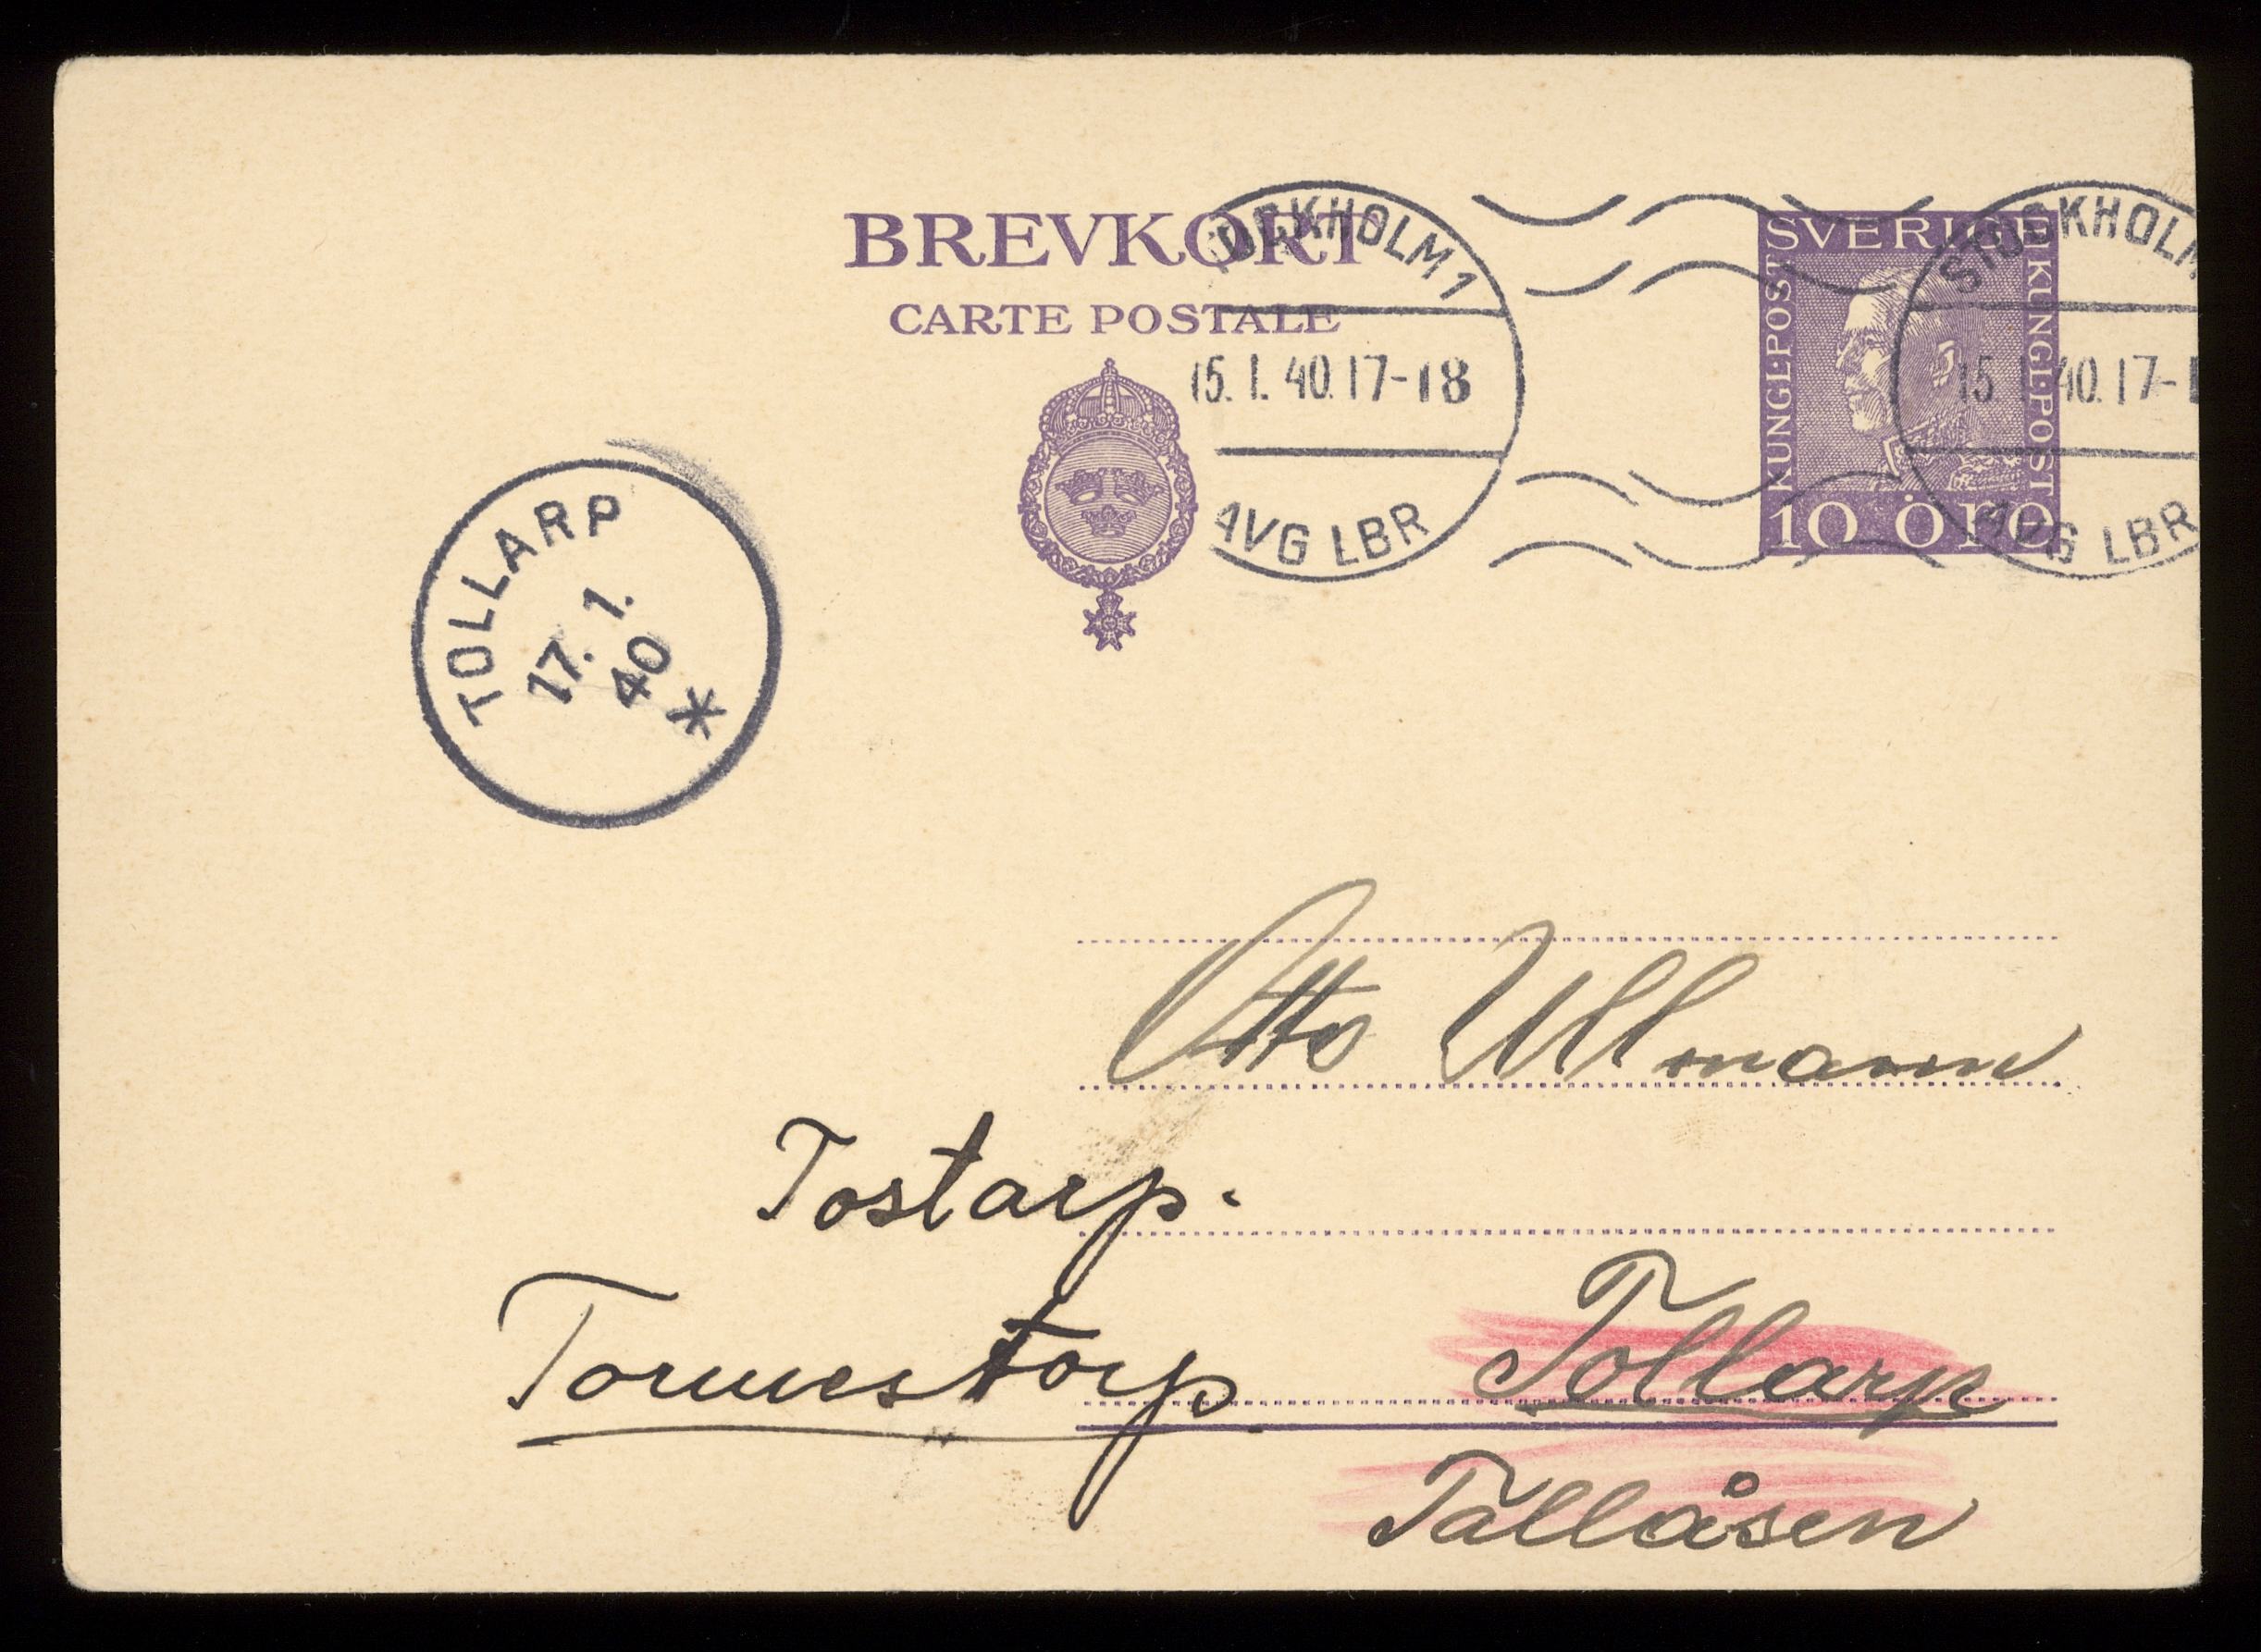 BREVKORT
CARTE POSTALE
STOCKHOLM 1
15. 1. 40. 17-18
AVG LBR
SVERIGE
KUNGL·POST
KUNGL·POST
10 ÖRE
STOCKHOLM
15 1 40. 17-1
AVG LBR
TOLLARP
17. 1.
40
*
Otto Ullmann
Tostarp.
Tormestorp
Tollarp
Tallåsen